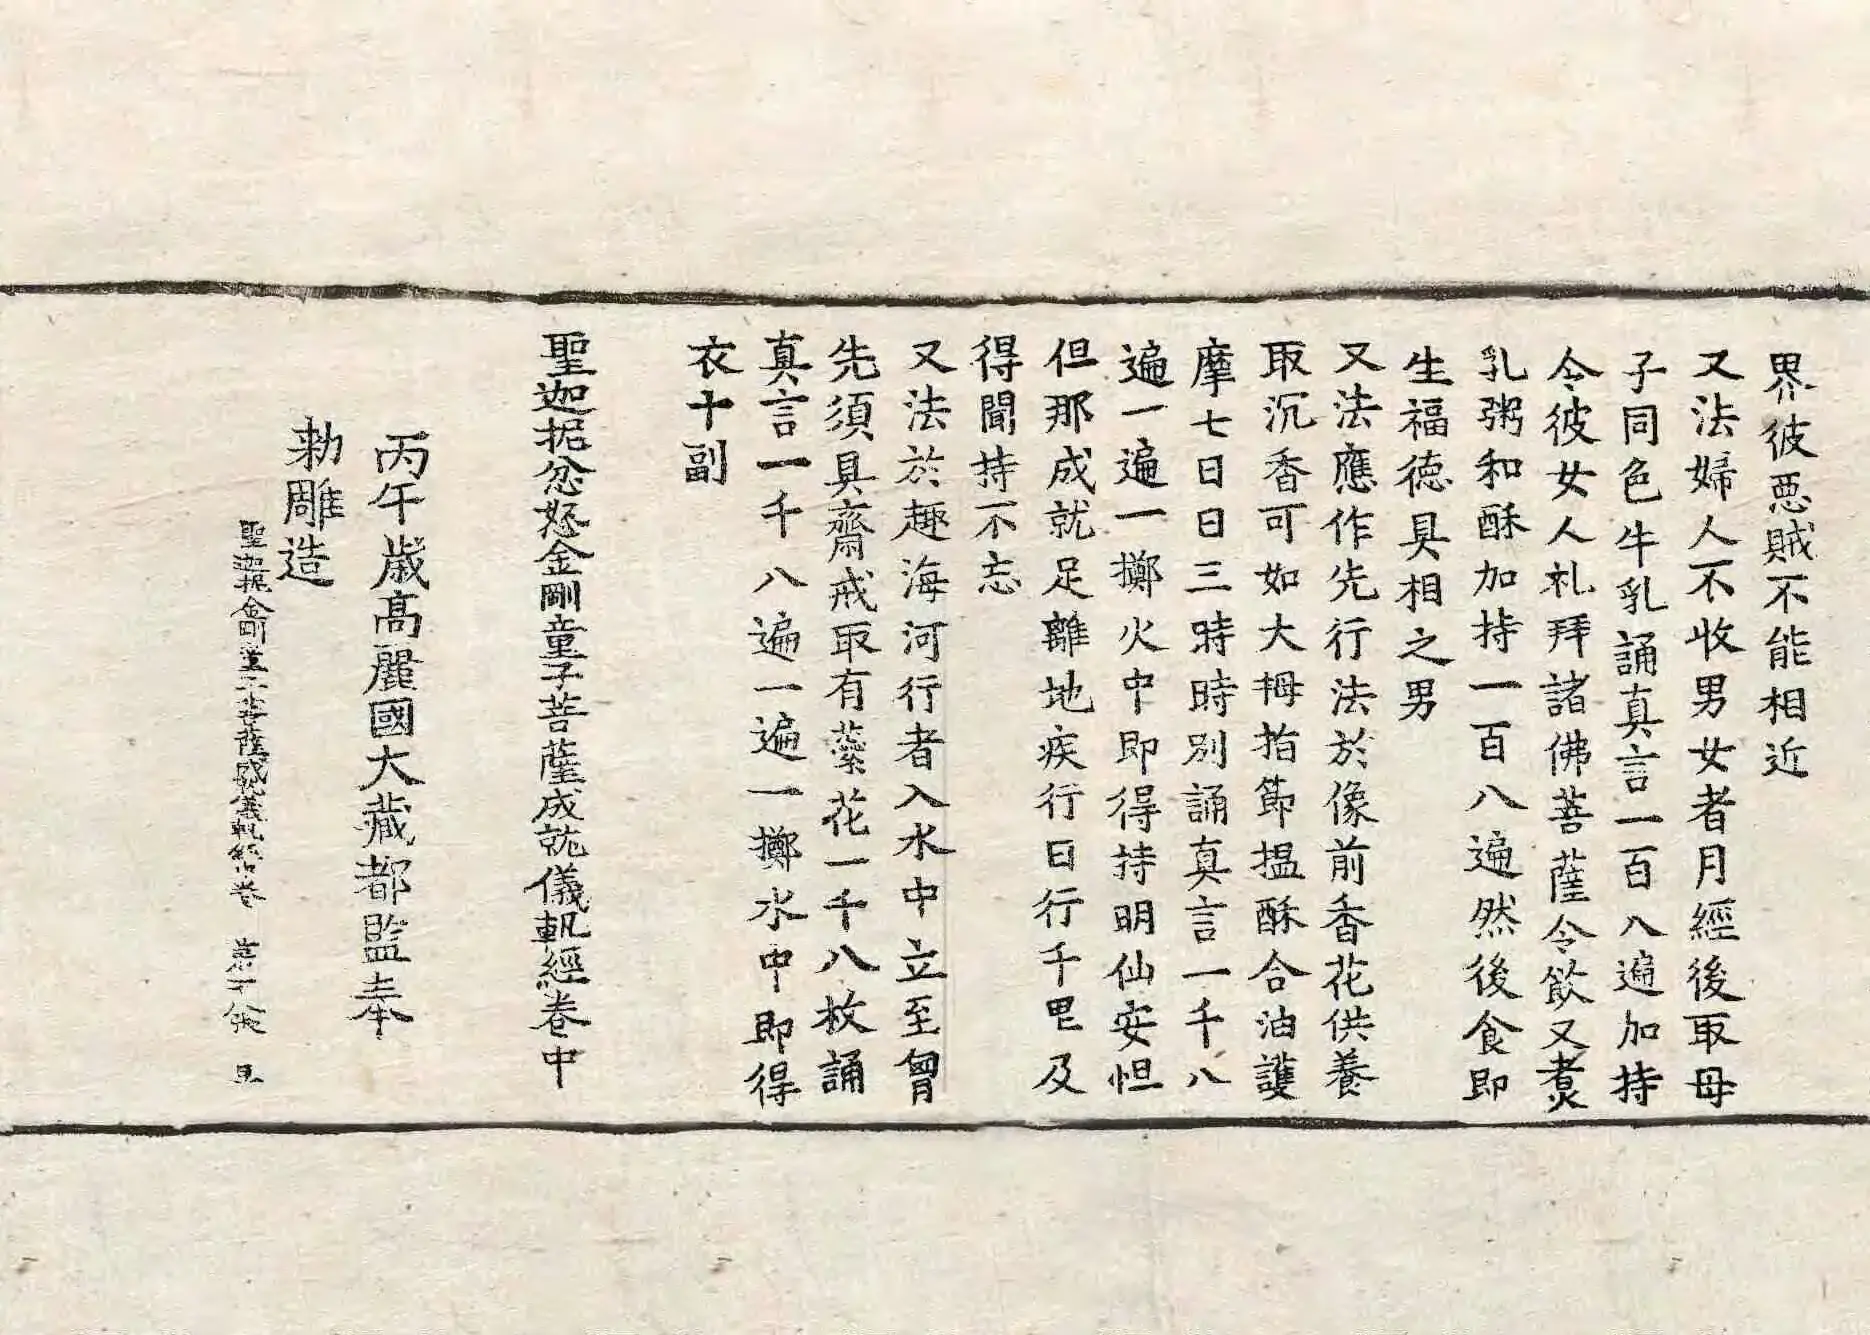 界彼惡賊不能相近
又法婦人不收男女者月經後取母
子同色牛乳誦真言一百八遍加持
令彼女人礼拜諸佛菩薩令飲又煑
乳粥和酥加持一百八遍然後食即
生福德具相之男
又法應作先行法於像前香花供養
取沉香可如大拇指節搵酥合油護
摩七日日三時時別誦真言一千八
遍一遍一擲火中即得持明仙安怛
但那成就足離地疾行日行千里及
得聞持不忘
又法於趣海河行者入水中立至胷
先須具齋戒取有蘂花一千八枚誦
真言一千八遍一遍一擲水中即得
衣十副
聖迦抳忿怒金剛童子菩薩成就儀軌經卷中
丙午歲高麗國大藏都監奉
勅雕造
聖迦抳金剛童子菩薩成就儀軌經中卷 第 張